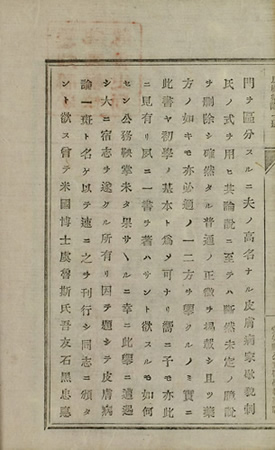 門ヲ區分スルニ夫ノ高名ナル皮膚病家歇貌刺
氏ノ式ヲ用ヒ其論説ニ至テハ斷然未定ノ臆説
ヲ刪除シ確然タル普通ノ正徴ヲ掲載シ且ツ藥
方ノ如キモ亦必適ノ一二方ヲ擧クルノミ實ニ
此書ヤ初學ノ基本ト爲メ可ナリ嚮ニ予モ亦此
ニ見有リ夙ニ一書ヲ著ハサント欲スルモ如何
セン公務鞅掌未タ果サヽルニ幸ニ此擧ニ遭遇
シ大ニ宿志ヲ遂クル所有リ因テ題シテ皮膚病
論一斑ト名ケ以テ速ニ之ヲ刊行シ同志ニ頒タ
ント欲ス曾テ米國博士虞魯斯氏吾友石黒忠悳